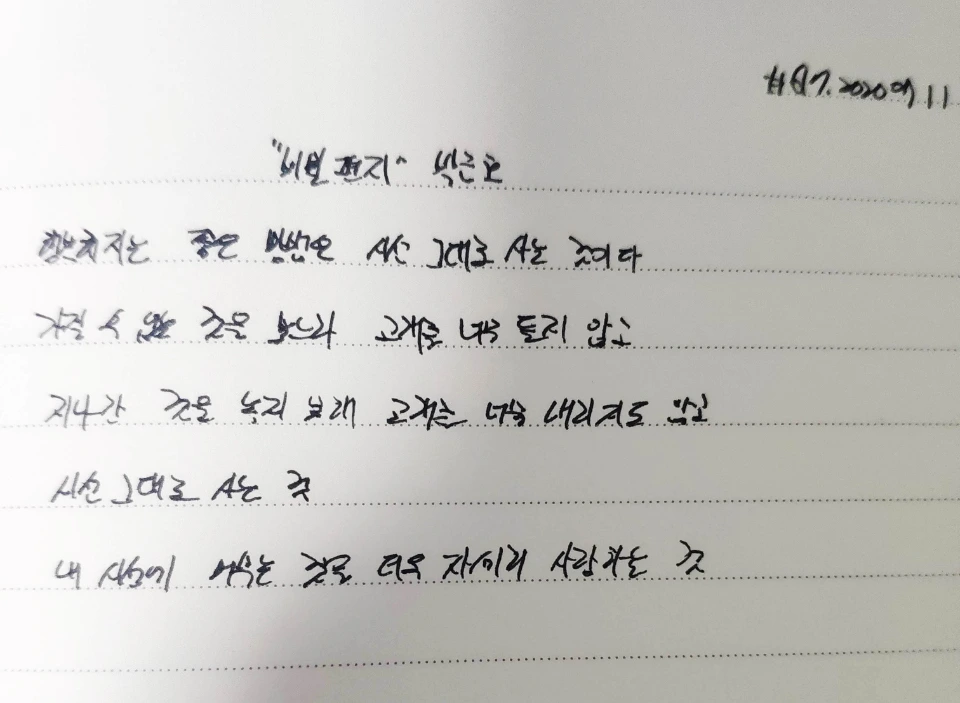 "비밀 편지" 박근호
행복해지는 좋은 방법은 시선 그대로 사는 것이다
가질 수 없는 것을 보느라 고개를 너무 들지 않고
지나간 것을 놓지 못해 고개를 너무 내리지도 않고
시선 그대로 사는 것
내 시선에 머무는 것을 더욱 자세히 사랑하는 것